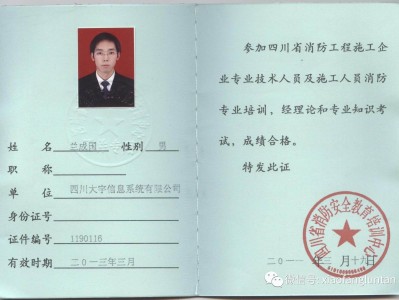 姓 名 兰成国 性别 男
职 称
单 位 四川大宇信息系统有限公司
身份证号
证件编号 1190116
有效时期 二0一三年三月
参加四川省消防工程施工企
业专业技术人员及施工人员消防
专业培训，经理论和专业知识考
试、成绩合格。
特发此证
四川省消防安全教育培训中心
二0一一 年 三 月 十九 日
微信号: xiaofangluntan